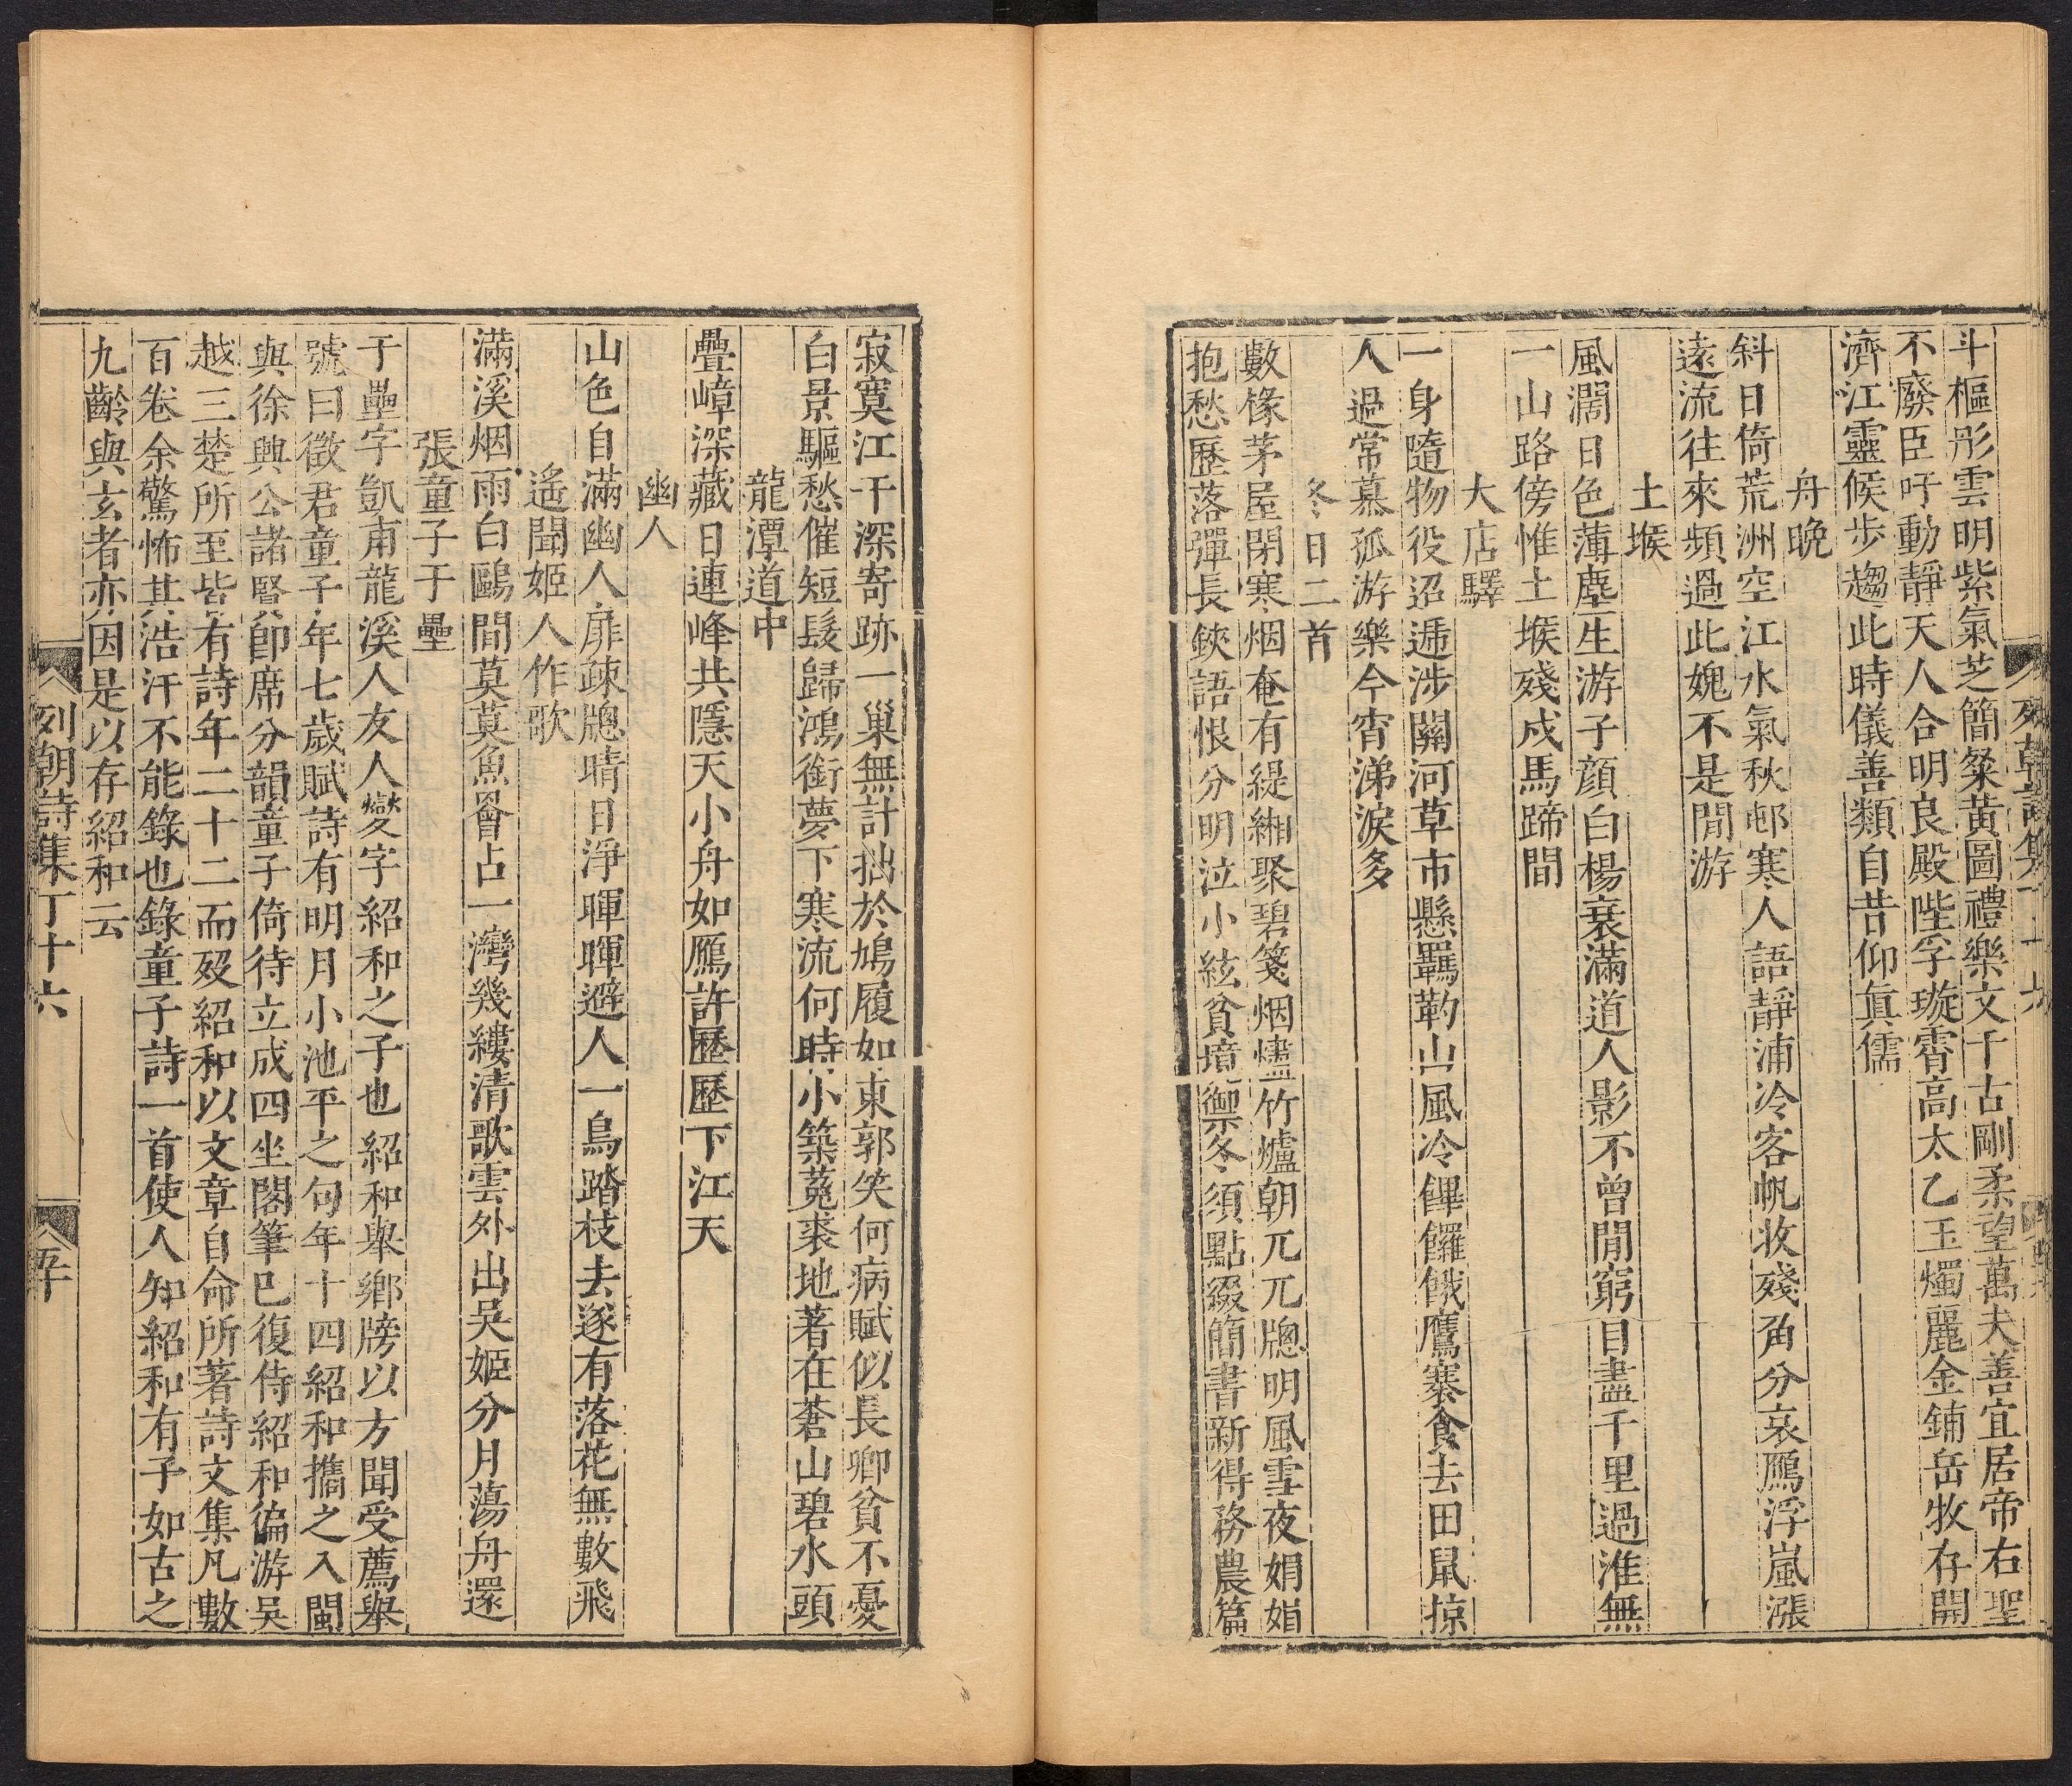 斗樞彤雲明紫氣芝簡粲黃圖禮樂文千古剛柔望萬夫善宜居帝右聖
不廢臣吁動靜天人合明良殿陛孚璇霄高太乙玉燭麗金鋪岳牧存開
濟江靈候步趨此時儀善類自昔仰眞儒
舟晚
斜日倚荒洲空江水氣秋邨寒人語靜浦冷客帆收殘角分哀鴈浮嵐漲
遠流往來頻過此媿不是閒游
土堠
風濶日色薄塵生游子顔白楊衰滿道人影不曾閒窮目盡千里過淮無
一山路傍惟土堠殘戍馬蹄間
大店驛
一身隨物役迢遞涉關河草市懸羈靮山風冷饆饠餓鷹寨食去田鼠掠
人過常慕孤游樂今宵涕淚多
冬日二首
數椽茅屋閉寒烟奄有緹緗聚碧箋烟燼竹爐朝兀兀牕明風雪夜娟娟
抱愁歷落彈長鋏語恨分明泣小絃貧境禦冬須點綴簡書新得務農篇
寂寞江干深寄跡一巢無計拙於鳩履如東郭笑何病賦似長卿貧不憂
白景驅愁催短髮歸鴻銜夢下寒流何時小築菟裘地著在蒼山碧水頭
龍潭道中
疊嶂深藏日連峰共隱天小舟如鴈許歷歷下江天
幽人
山色自滿幽人扉疎牕晴日淨暉暉避人一鳥踏枝去遂有落花無數飛
遙聞姬人作歌
滿溪烟雨白鷗間莫莫魚罾占一灣幾縷清歌雲外出吳姬分月蕩舟還
張童子于壘
于壘字凱甫龍溪人友人燮字紹和之子也紹和舉鄉牓以方聞受薦舉
號曰徵君童子年七歲賦詩有明月小池平之句年十四紹和攜之入閩
與徐興公諸賢卽席分韻童子倚待立成四坐閣筆已復侍紹和徧游吳
越三楚所至皆有詩年二十二而歿紹和以文章自命所著詩文集凡數
百卷余驚怖其浩汗不能錄也錄童子詩一首使人知紹和有子如古之
九齡與玄者亦因是以存紹和云
列朝詩集丁十六
五十